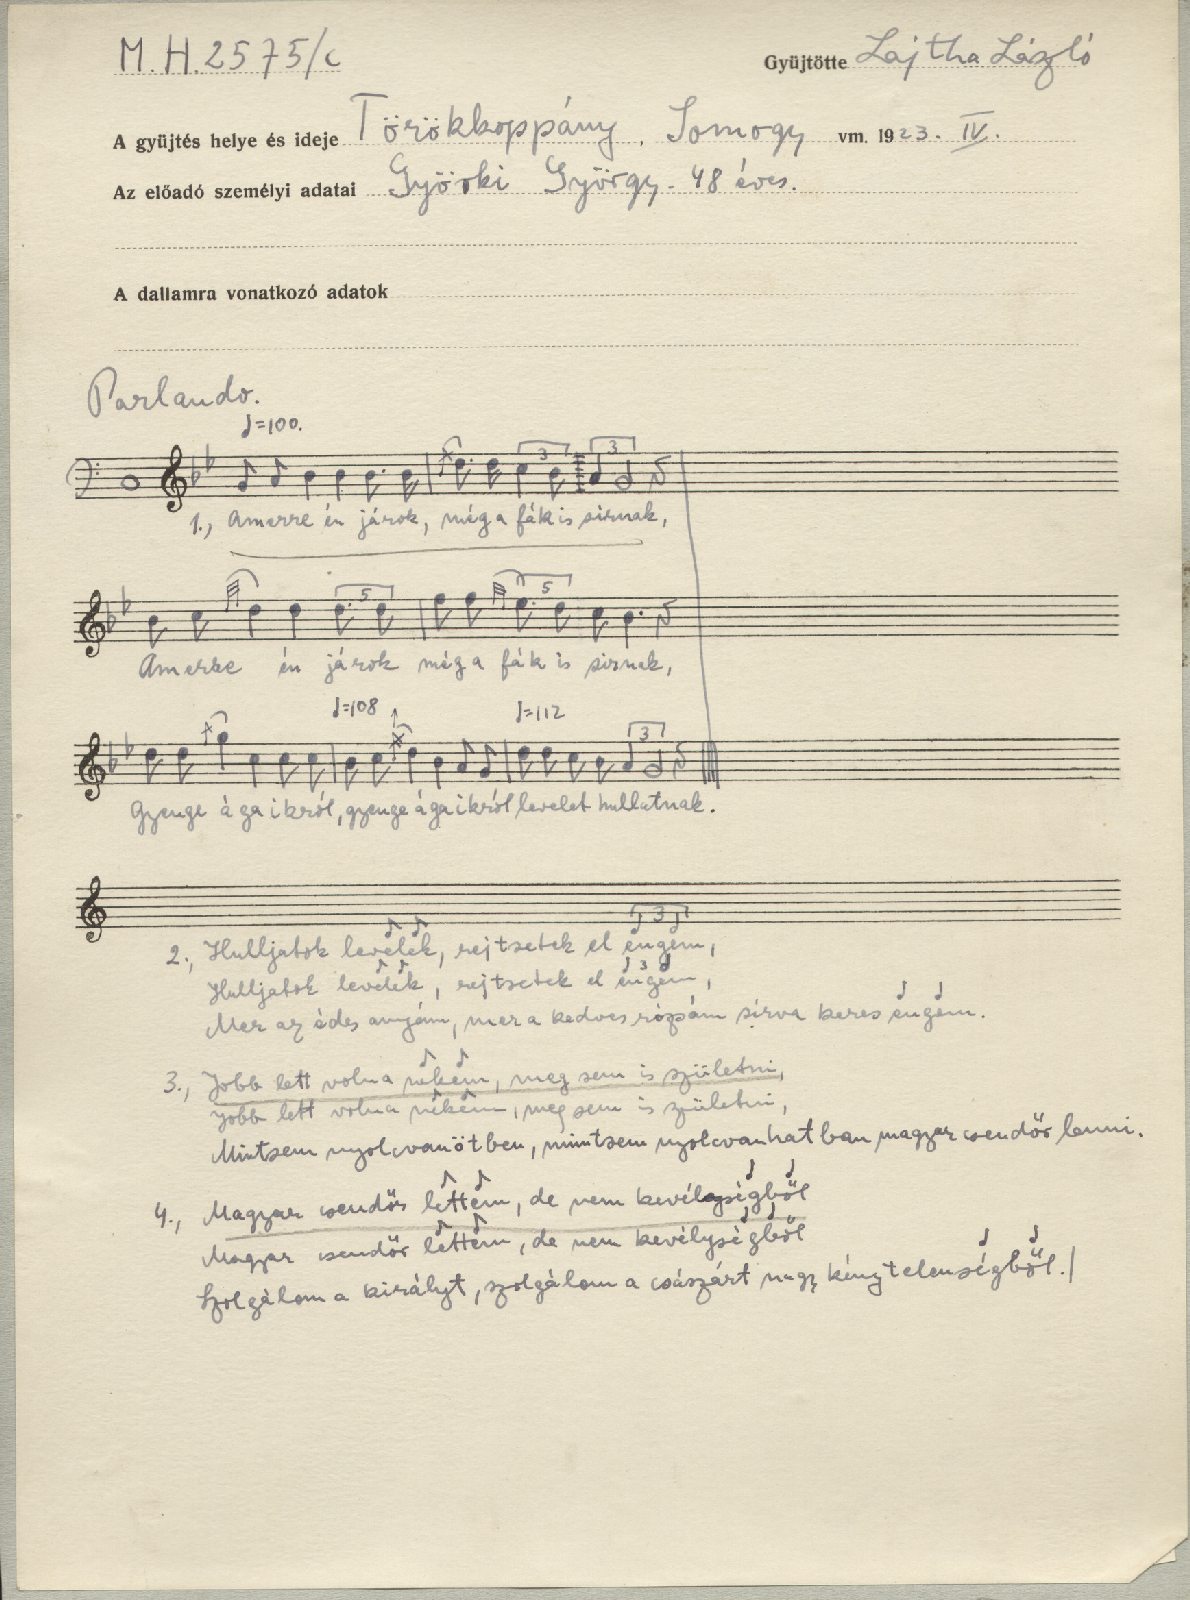 M.H. 2575/c
Gyüjtötte Lajtha László
A gyüjtés helye és ideje Törökkoppány, Somogy vm. 1923. IV.
Az előadó személyi adatai Györki György. 48 éves.
A dallamra vonatkozó adatok
Parlando.
♩=100.
3 3
1., Amerre én járok, még a fák is sirnak,
5 5
Amerre én járok még a fák is sirnak,
♩=108 ♩=112
3
Gyenge ágaikról, gyenge ágaikról levelet hullatnak.
3
2., Hulljatok levelek, rejtsetek el engem,
3
Hulljatok levelek, rejtsetek el engem,
Mer az édes anyám, mer a kedves rózsám sirva keres engem.
3., Jobb lett volna nékem, meg sem is születni,
Jobb lett volna nékem, meg sem is születni,
Mintsem nyolcvanötben, mintsem nyolcvanhatban magyar csendőr lenni.
4., Magyar csendőr lettem, de nem kevélységből
Magyar csendőr lettem, de nem kevélységből
Szolgálom a királyt, szolgálom a császárt nagy kénytelenségből.